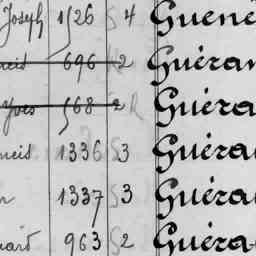 Joseph 1526 S 4 Guene
ncis 696 S 2 Guéran
Yves 568 2 R Guéra
ncis 1336 S 3 Guéra
1337 S 3 Guéra
uard 963 S 2 Guéra